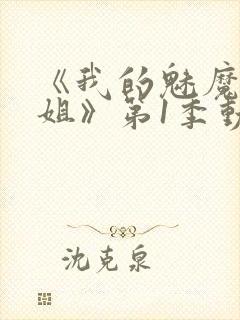 《我的魅魔
姐》第1季動
沈克泉